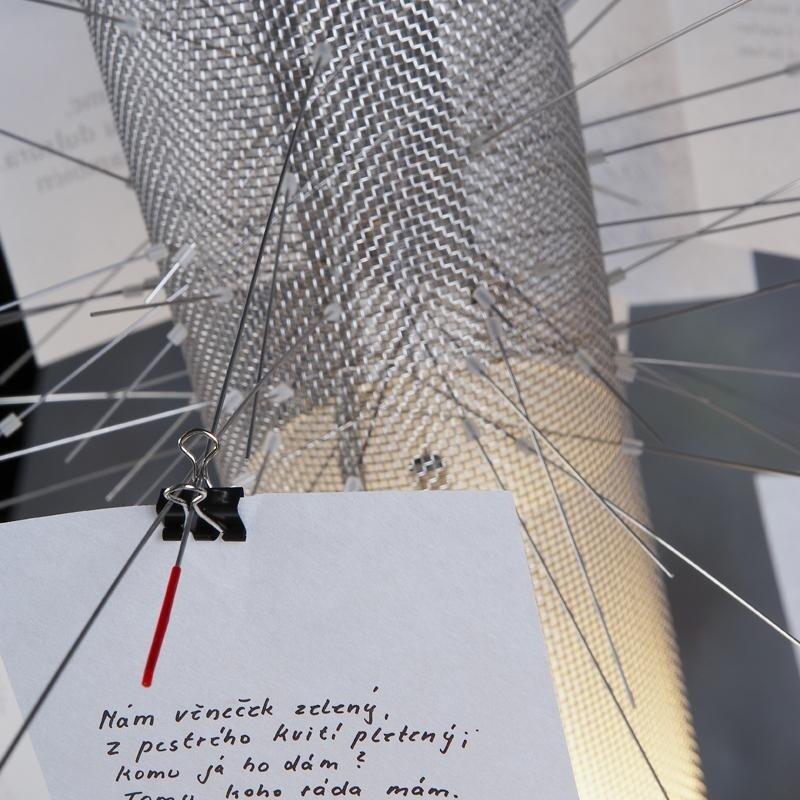 Mám věneček zelený,
z pestrého kvití pletený;
komu já ho dám?
Tomu, koho ráda mám.